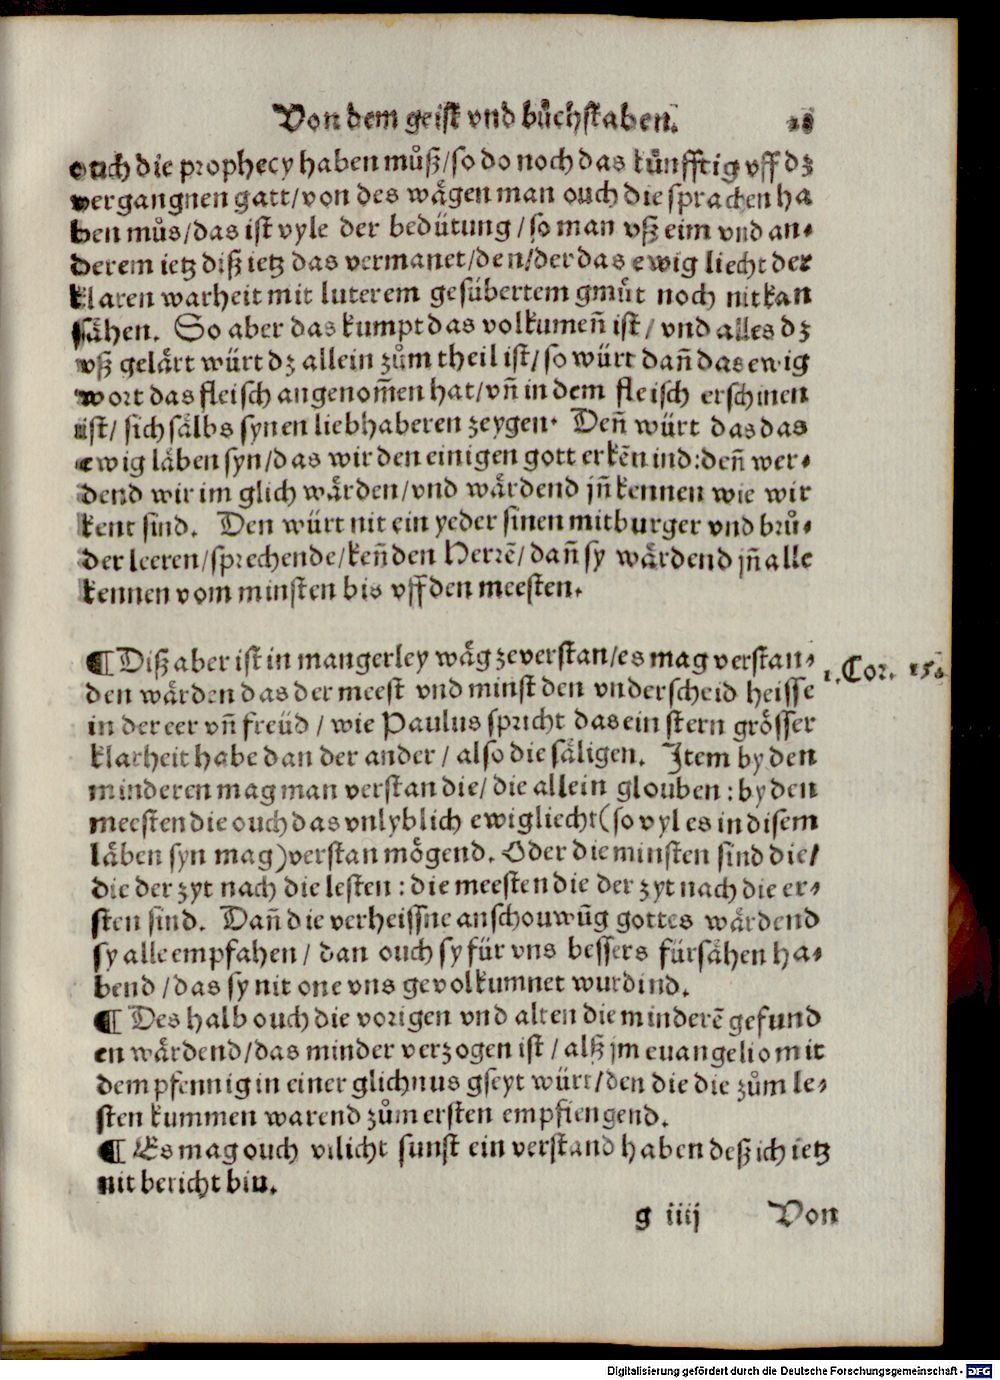 Von dem geist vnd bůchstaben. 28
ouch die prophecy haben můß/so do noch das künfftig vff dz
vergangnen gatt/von des wägen man ouch die sprachen ha
ben můs/das ist vyle der bedütung/so man vß eim vnd an-
derem ietz diß ietz das vermanet/den/der das ewig liecht der
klaren warheit mit luterem gesübertem gmüt noch nit kan
sähen. So aber das kumpt das volkumeñ ist/vnd alles dz
vß gelärt würt dz allein zům theil ist/so würt dañ das ewig
wort das fleisch angenom̃en hat/vñ in dem fleisch erschinen
ist/sich sälbs synen liebhaberen zeygen. Deñ würt das das
ewig läben syn/das wir den einigen gott erkẽn ind:deñ wer-
dend wir im glich wärden/vnd wärdend jñ kennen wie wir
kent sind. Den würt nit ein yeder sinen mitburger vnd brů-
der leeren/sprechende/keñ den Herrẽ/dañ sy wärdend jñ alle
kennen vom minsten bis vff den meesten.
¶ Diß aber ist in mangerley wäg zeverstan/es mag verstan-
den wärden das der meest vnd minst den vnderscheid heisse
in der eer vñ freüd/wie Paulus spricht das ein stern grösser
klarheit habe dan der ander/also die säligen. Item by den
minderen mag man verstan die/die allein glouben:by den
meesten die ouch das vnlyblich ewig liecht(so vyl es in disem
läben syn mag)verstan mögend. Oder die minsten sind die/
die der zyt nach die lesten:die meesten die der zyt nach die er-
sten sind. Dañ die verheissne anschouwũg gottes wärdend
sy alle empfahen/dan ouch sy für vns bessers fürsähen ha-
bend/das sy nit one vns gevolkumnet wurdind.
¶ Des halb ouch die vorigen vnd alten die minderẽ gefund
en wärdend/das minder verzogen ist/alß jm euangelio mit
dem pfennig in einer glichnus gseyt würt/den die die zům le-
sten kummen warend zům ersten empfiengend.
¶ Es mag ouch vilicht sunst ein verstand haben deß ich ietz
nit bericht bin.
g iiij Von
1. Cor. 15.
Digitalisierung gefördert durch die Deutsche Forschungsgemeinschaft - DFG